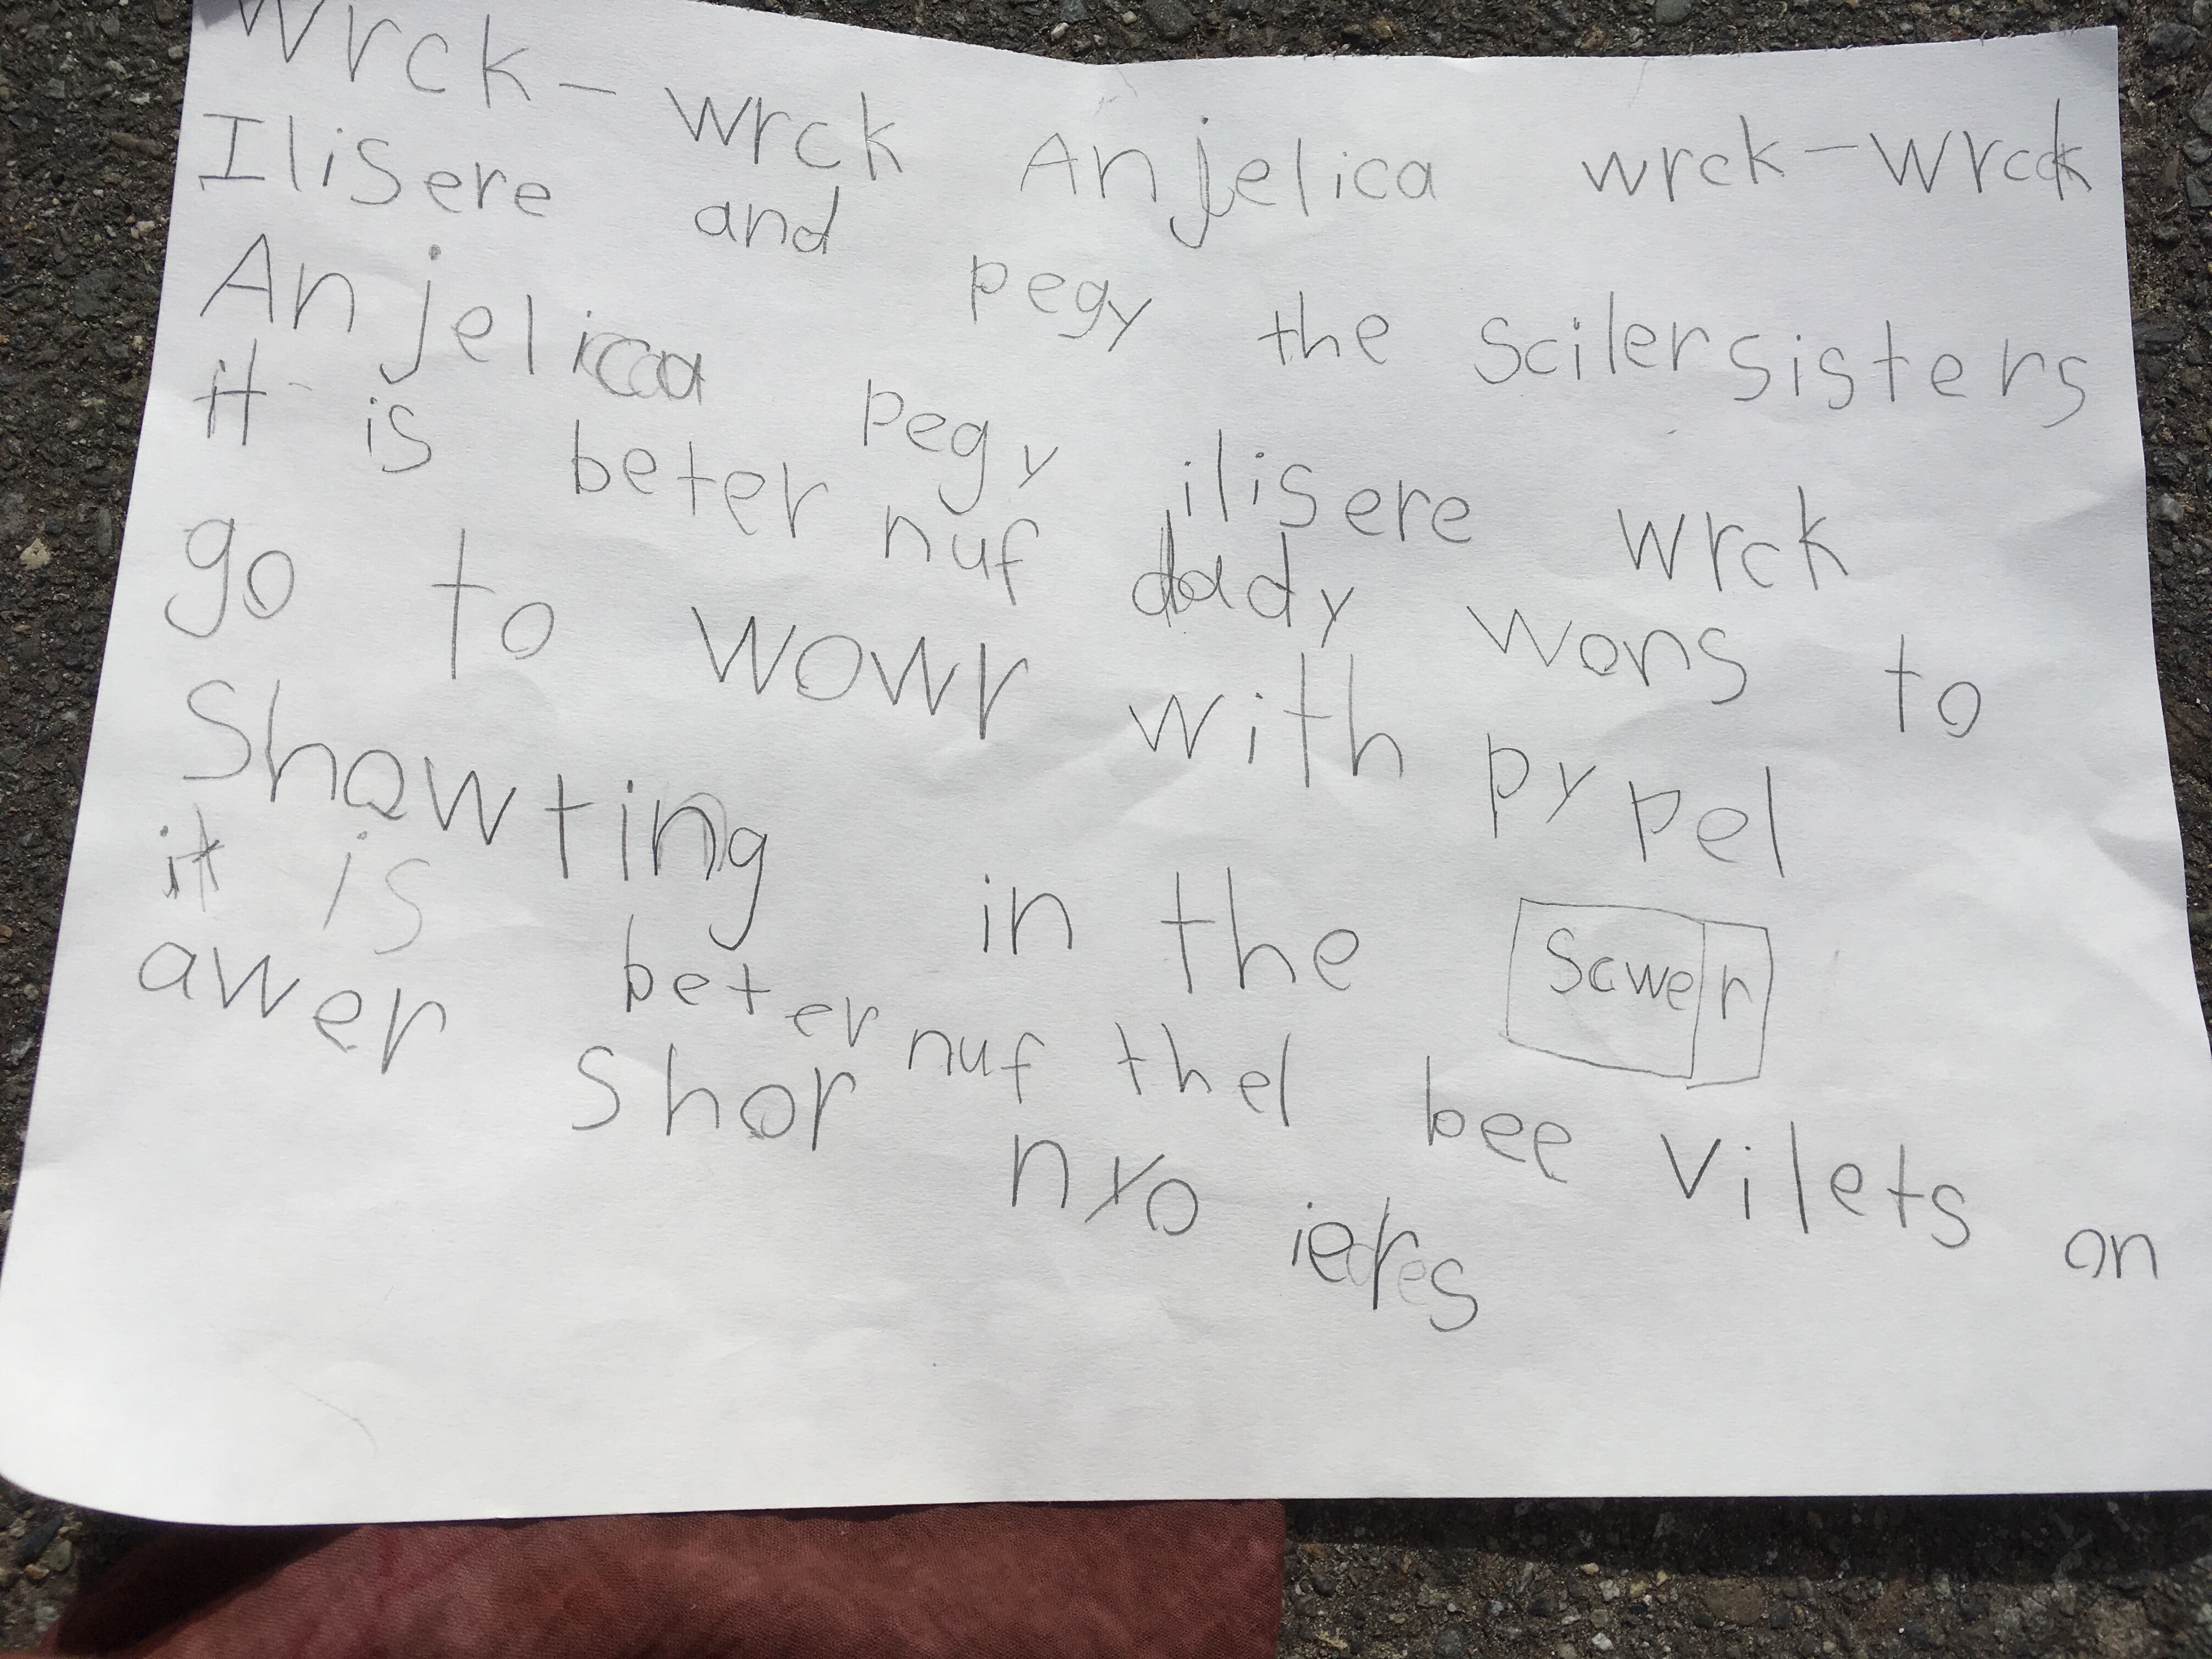 Wrck - wrck Anjelica wrck - wrck
Ilisere and pegy the scilersisters
Anjelica pegy ilisere wrck
it is beter nuf dady wons to
go to wowr with pypel
Showting in the Scwer
it is beter nuf thel bee vilets on
awer shor nyo ieres